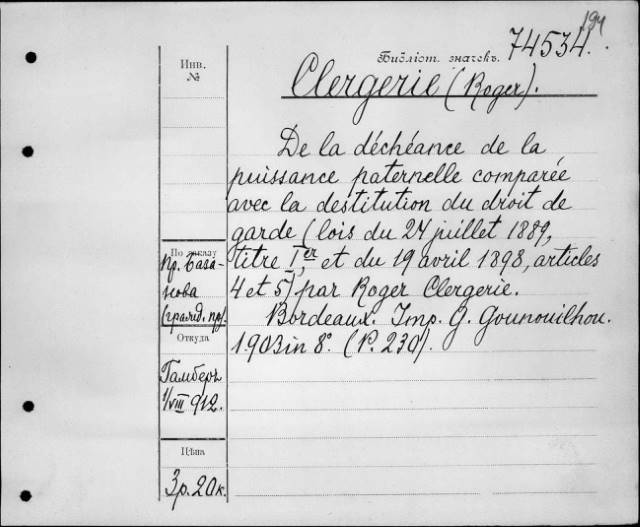 194
Библіот. значекъ. 74534.
Инв.
№
Clergerie (Roger).
De la déchéance de la
puissance paternelle comparée
avec la destitution du droit de
garde (lois du 24 juillet 1889,
titre Ier, et du 19 avril 1898, articles
4 et 5) par Roger Clergerie.
Bordeaux. Imp. G. Gounouilhou.
1903 in 8°. (P. 230).
По заказу
Пр. База-
нова
(гражд. пр).
Откуда
Гамберъ
1/VIII 912.
Цѣна
3 р. 20 к.